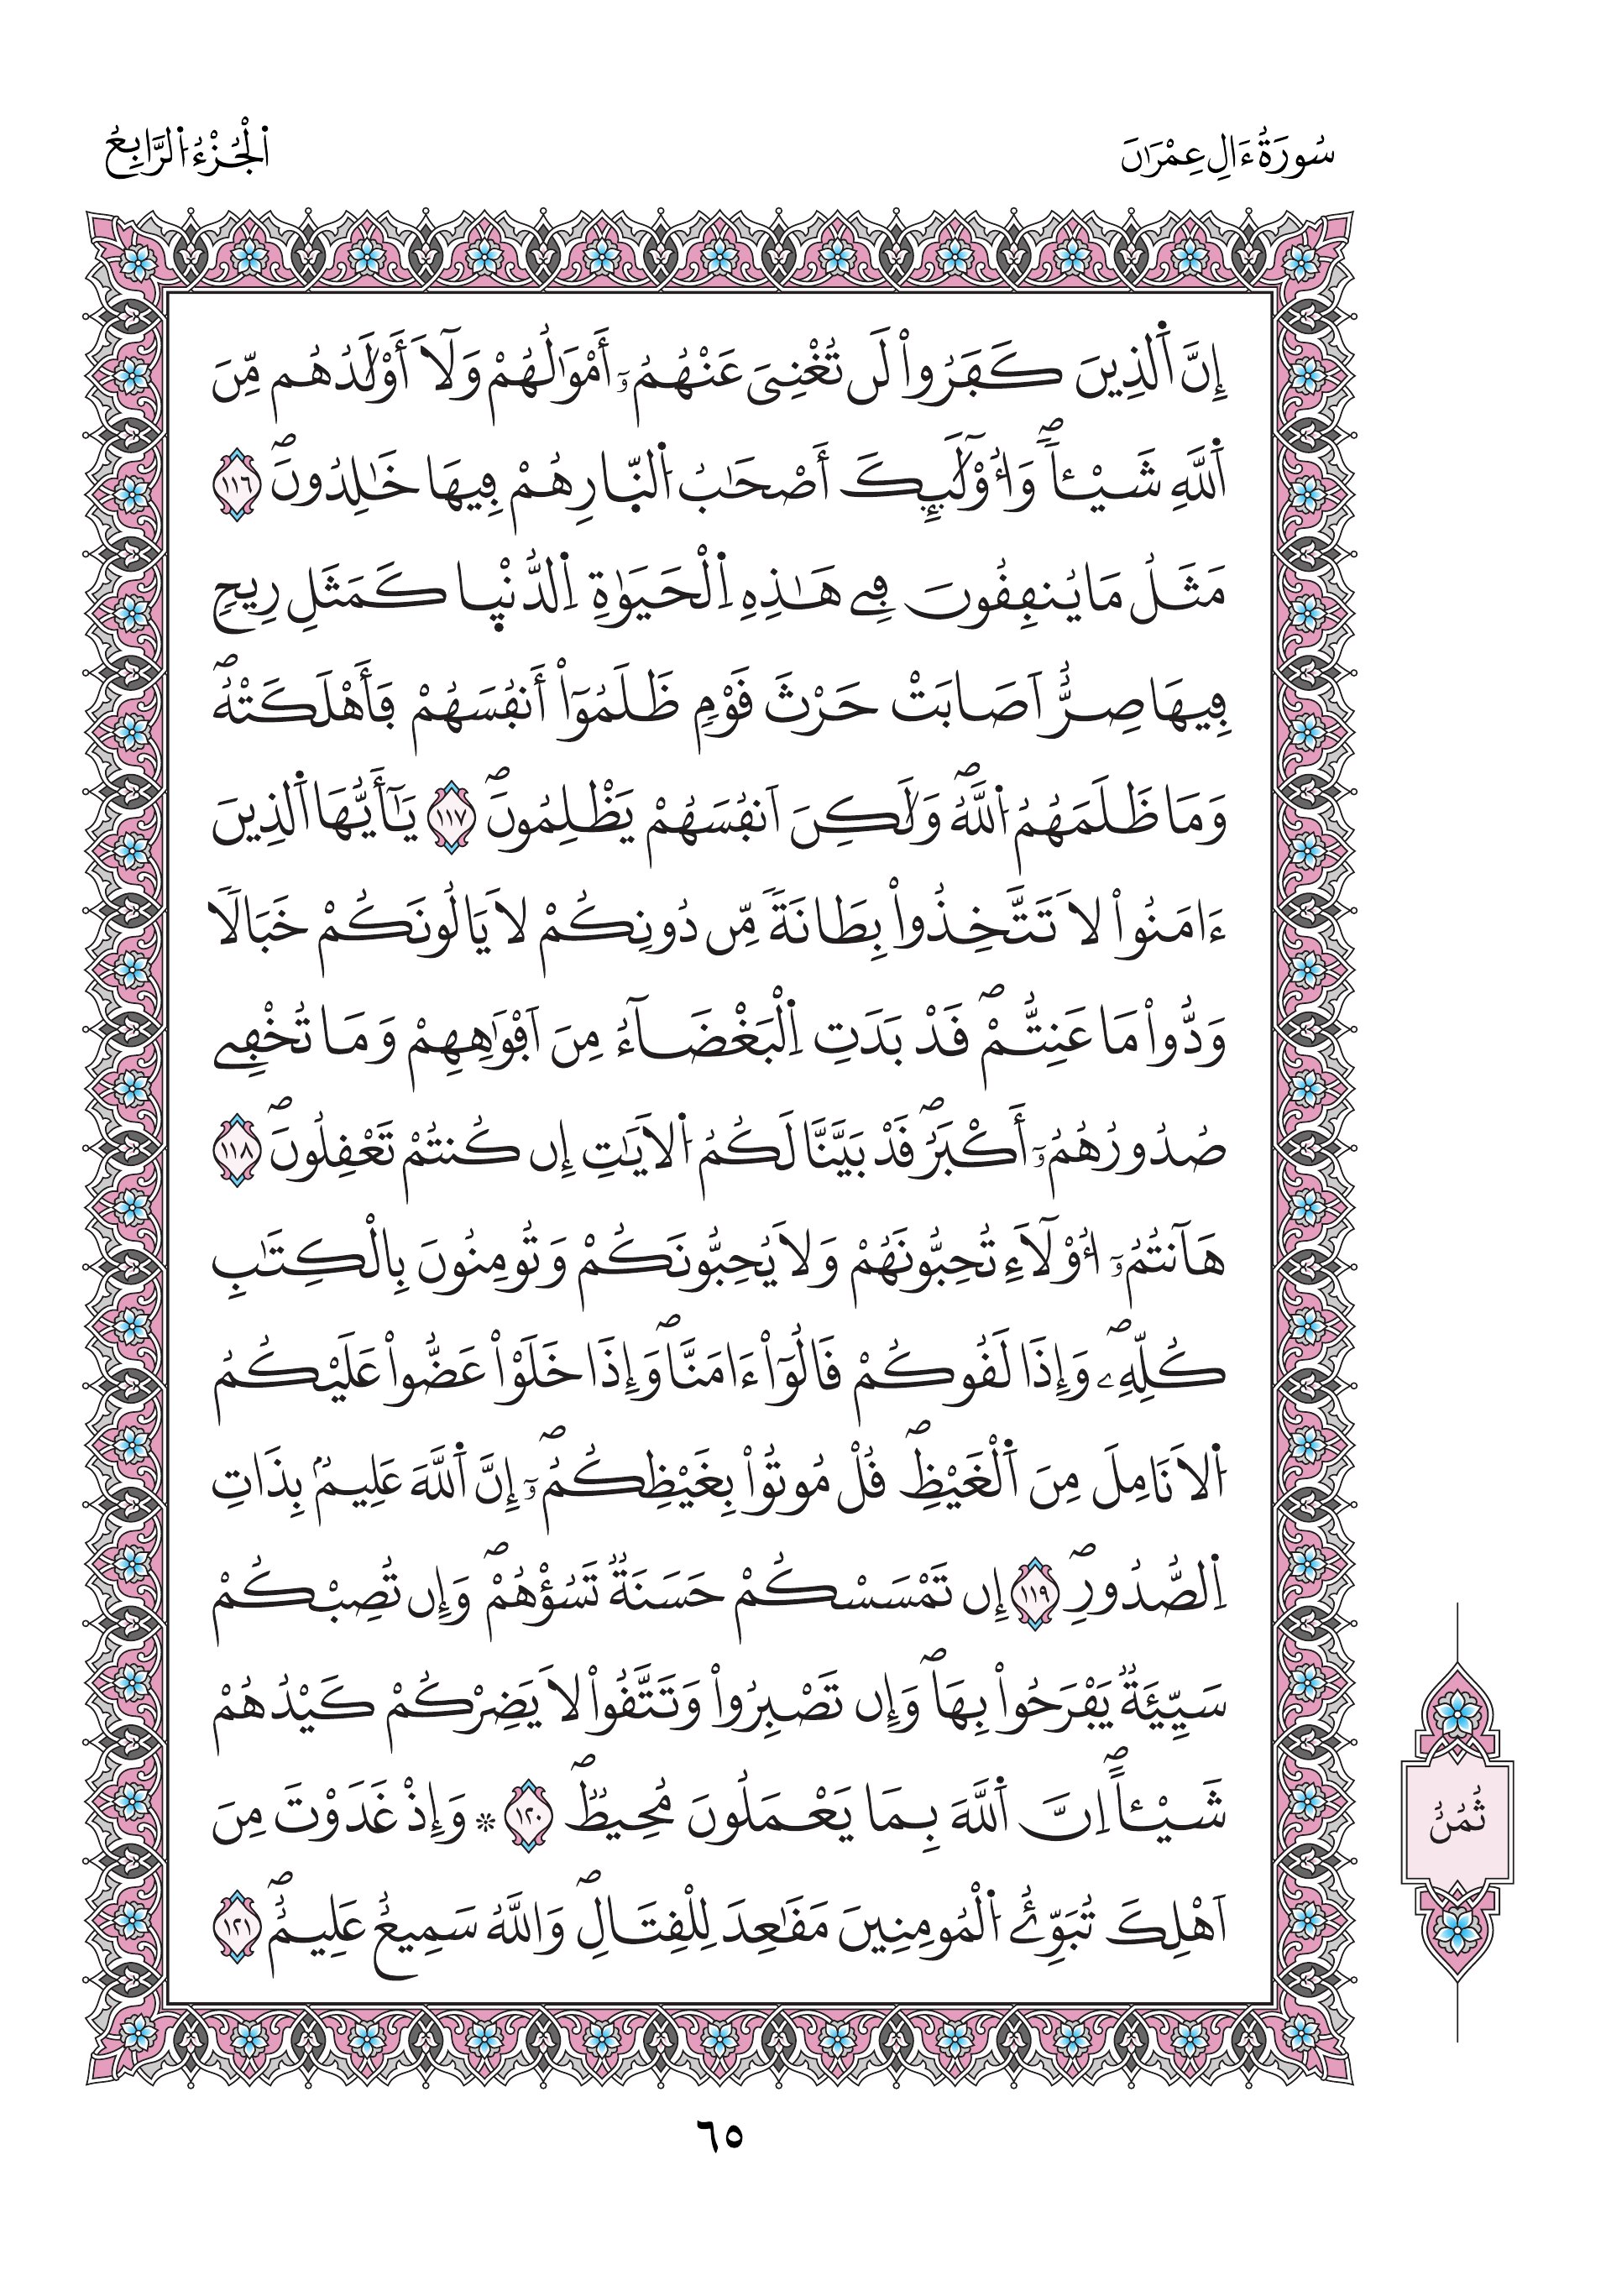 سُورَةُ ءَالِ عِمْرَانَ
اَلْجُزْءُ اُلرَّابِعُ
إِنَّ اَلذِينَ كَفَرُواْ لَن تُغْنِيَ عَنْهُمُۥٓ أَمْوَٰلُهُمْ وَلَآ أَوْلَٰدُهُم مِّنَ
اَللَّهِ شَيْـٔاًۖ وَأُوْلَٰٓئِكَ أَصْحَٰبُ اُلنّ۪ارِ هُمْ فِيهَا خَٰلِدُونَۖ ١١٦
مَثَلُ مَا يُنفِقُونَ فِے هَٰذِهِ اِلْحَيَوٰةِ اِلدُّنْي۪ا كَمَثَلِ رِيحٖ
فِيهَا صِرٌّ اَصَابَتْ حَرْثَ قَوْمٖ ظَلَمُوٓاْ أَنفُسَهُمْ فَأَهْلَكَتْهُۖ
وَمَا ظَلَمَهُمُ اُللَّهُۖ وَلَٰكِنَ اَنفُسَهُمْ يَظْلِمُونَۖ ١١٧ يَٰٓأَيُّهَا اَلذِينَ
ءَامَنُواْ لَا تَتَّخِذُواْ بِطَانَةٗ مِّن دُونِكُمْ لَا يَالُونَكُمْ خَبَالٗا
وَدُّواْ مَا عَنِتُّمْۖ قَدْ بَدَتِ اِلْبَغْضَآءُ مِنَ اَفْوَٰهِهِمْ وَمَا تُخْفِے
صُدُورُهُمُۥٓ أَكْبَرُۖ قَدْ بَيَّنَّا لَكُمُ اُلْأيَٰتِ إِن كُنتُمْ تَعْقِلُونَۖ ١١٨
هَآنتُمُۥٓ أُوْلَآءِ تُحِبُّونَهُمْ وَلَا يُحِبُّونَكُمْ وَتُومِنُونَ بِالْكِتَٰبِ
كُلِّهِۦۖ وَإِذَا لَقُوكُمْ قَالُوٓاْ ءَامَنَّاۖ وَإِذَا خَلَوْاْ عَضُّواْ عَلَيْكُمُ
اُلَانَامِلَ مِنَ اَلْغَيْظِۖ قُلْ مُوتُواْ بِغَيْظِكُمُۥٓۖ إِنَّ اَللَّهَ عَلِيمُۢ بِذَاتِ
اِلصُّدُورِۖ ١١٩ إِن تَمْسَسْكُمْ حَسَنَةٞ تَسُؤْهُمْۖ وَإِن تُصِبْكُمْ
سَيِّئَةٞ يَفْرَحُواْ بِهَاۖ وَإِن تَصْبِرُواْ وَتَتَّقُواْ لَا يَضِرْكُمْ كَيْدُهُمْ
شَيْـٔاًۖ اِنَّ اَللَّهَ بِمَا يَعْمَلُونَ مُحِيطٞۖ ١٢٠ * وَإِذْ غَدَوْتَ مِنَ
اَهْلِكَ تُبَوِّئُ اُلْمُومِنِينَ مَقَٰعِدَ لِلْقِتَالِۖ وَاللَّهُ سَمِيعٌ عَلِيمٌۖ ١٢١
ثُمُنُ
٦٥